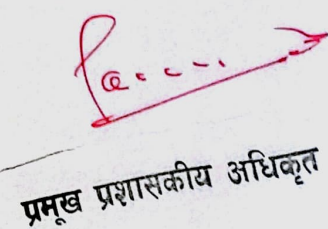 प्रमूख प्रशासकीय अधिकृत